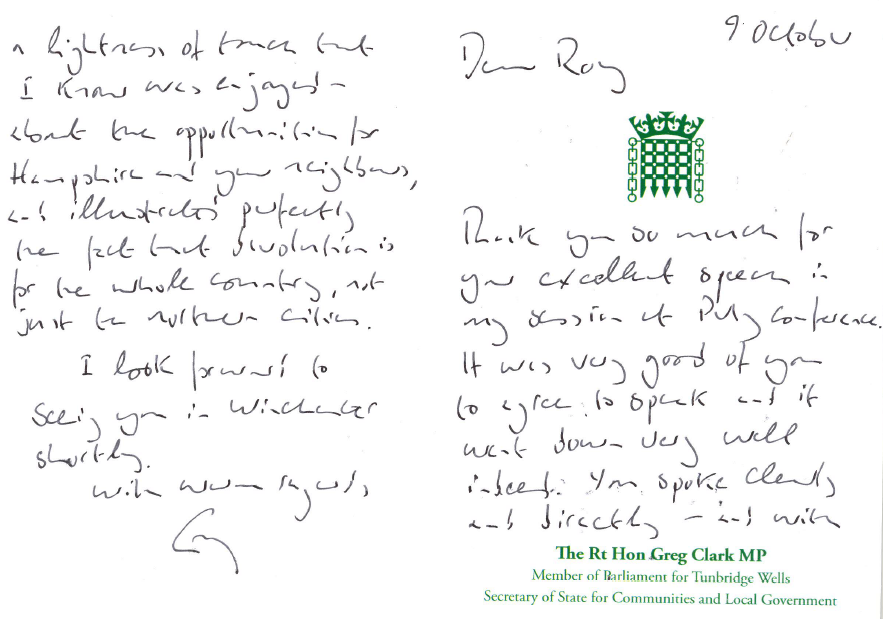 9 October
Dear Roy
Thank you so much for
your excellent speech in
my session at Party Conference.
It was very good of you
to agree to speak and it
went down very well
indeed. You spoke clearly
and directly – and with
The Rt Hon Greg Clark MP
Member of Parliament for Tunbridge Wells
Secretary of State for Communities and Local Government
a lightness of touch that
I know was enjoyed –
about the opportunities for
Hampshire and your neighbours,
and illustrated perfectly
the fact that devolution is
for the whole country, not
just the northern cities.
I look forward to
seeing you in Winchester
shortly.
With warm regards,
Greg